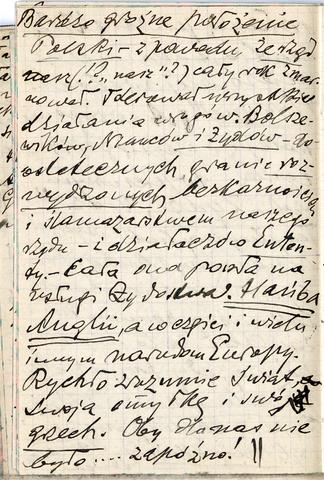 Bardzo groźne położenie
Polski – z powodu że rząd
nasz (!? „nasz"?) cały rok zmar-
nował. Tolerował wszystkie
działania wrogów, Bolsze-
wików, Niemców i Żydów – do
ostatecznych granic roz-
wydrzonych bezkarnością
i ślamazarstwem naszego
rządu – i działaczów Enten-
ty, – Cała ona poszła na
usługi Żydostwa. Hańba
Anglii, a w części i wielu
innym narodom Europy.
Rychło zrozumie Świat
swoją omyłkę i swój
grzech. Oby dla nas nie
było .... zapóźno!